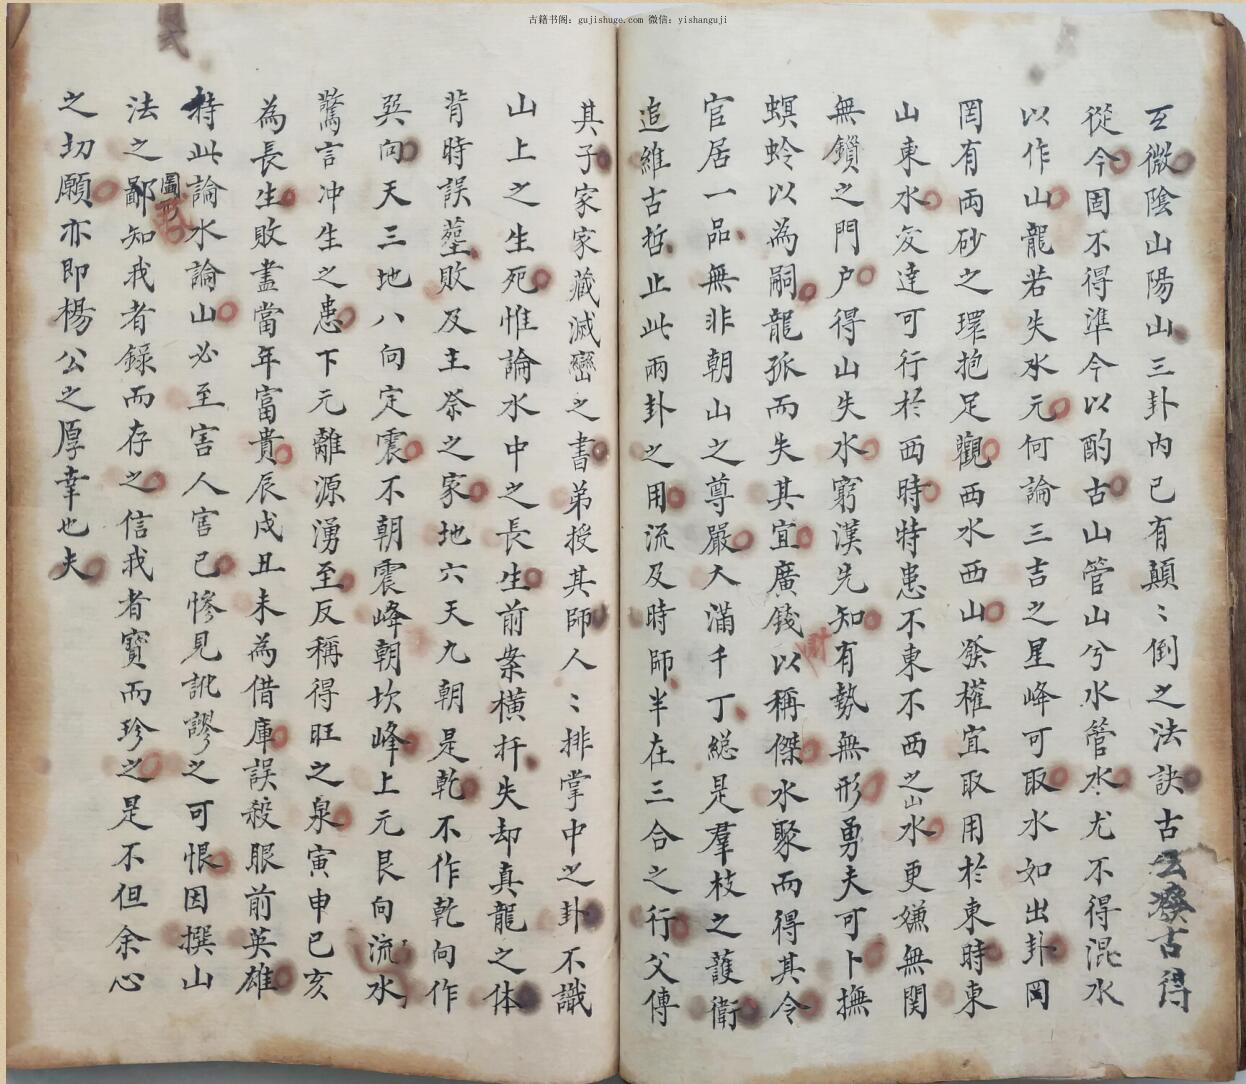 古籍书阁：gujishuge.com 微信：yishanguji
互微陰山陽山三卦内已有顛〻倒之法訣古云癈古得
從今固不得準今以酌古山管山兮水管水尤不得混水
以作山龍若失水元何論三吉之星峰可取水如出卦罔
罔有兩砂之環抱足觀西水西山發權宜取用於東時東
山東水友達可行於西時特患不東不西之山水更嫌無関
無鎖之門户得山失水窮漢先知有勢無形勇夫可卜撫
螟蛉以為嗣龍孤而失其宜廣錢以稱傑水聚而得其令
財
官居一品無非朝山之尊嚴大滿千丁縂是羣枝之護衛
追維古哲止此兩卦之用流及時師半在三合之行父傳
其子家家藏滅巒之書弟授其師人〻排掌中之卦不識
山上之生死惟論水中之長生前案橫扦失却真龍之体
背時誤塟敗及主祭之家地六天九朝是乾不作乾向作
巽向天三地八向定震不朝震峰朝坎峰上元艮向流水
驚言冲生之患下元離源湧至反稱得旺之泉寅申巳亥
為長生敗盡當年富貴辰戌丑未為借庫誤殺眼前英雄
特此論水論山必至害人害己慘見訛謬之可恨因撰山
圖形
法之鄙知我者錄而存之信我者寳而珍之是不但余心
之切願亦即楊公之厚幸也夫